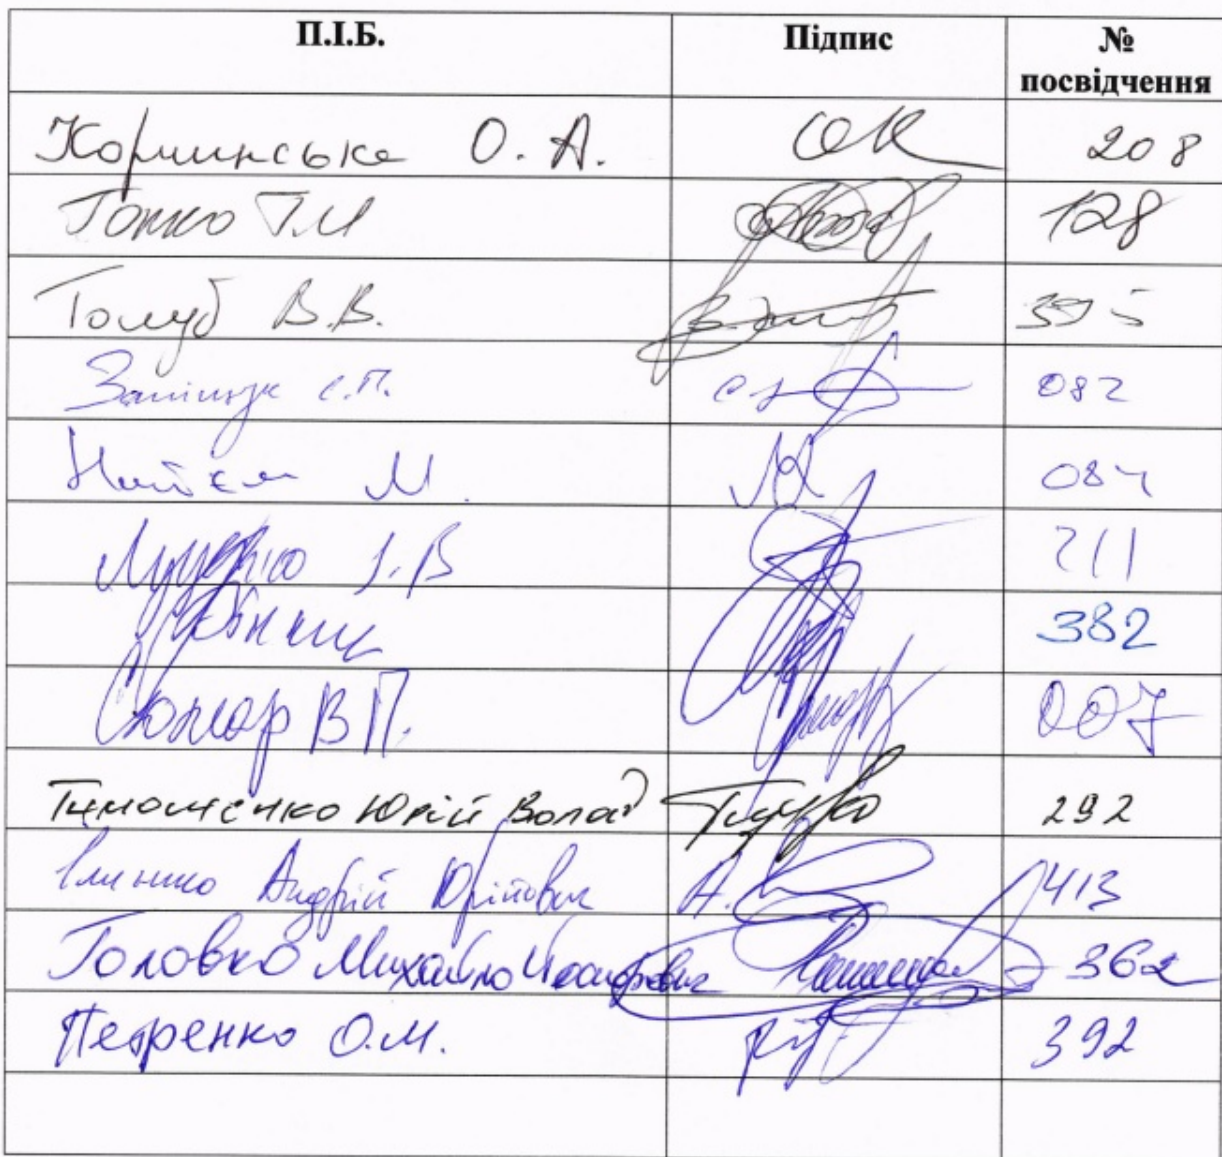 П.І.Б. Підпис № посвідчення
Корчинська О. А. 208
Гопко Г.М 128
Голуб В.В. 395
Заліщук С.П. 082
Найєм М. 084
Луценко І.В 211
382
Сюмар В П. 007
Тимошенко Юрій Волод 292
Іллєнко Андрій Юрійович 413
Головко Михайло Йосифович 362
Петренко О.М. 392